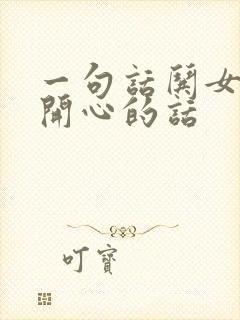 一句話鬨女
開心的話
叮寶